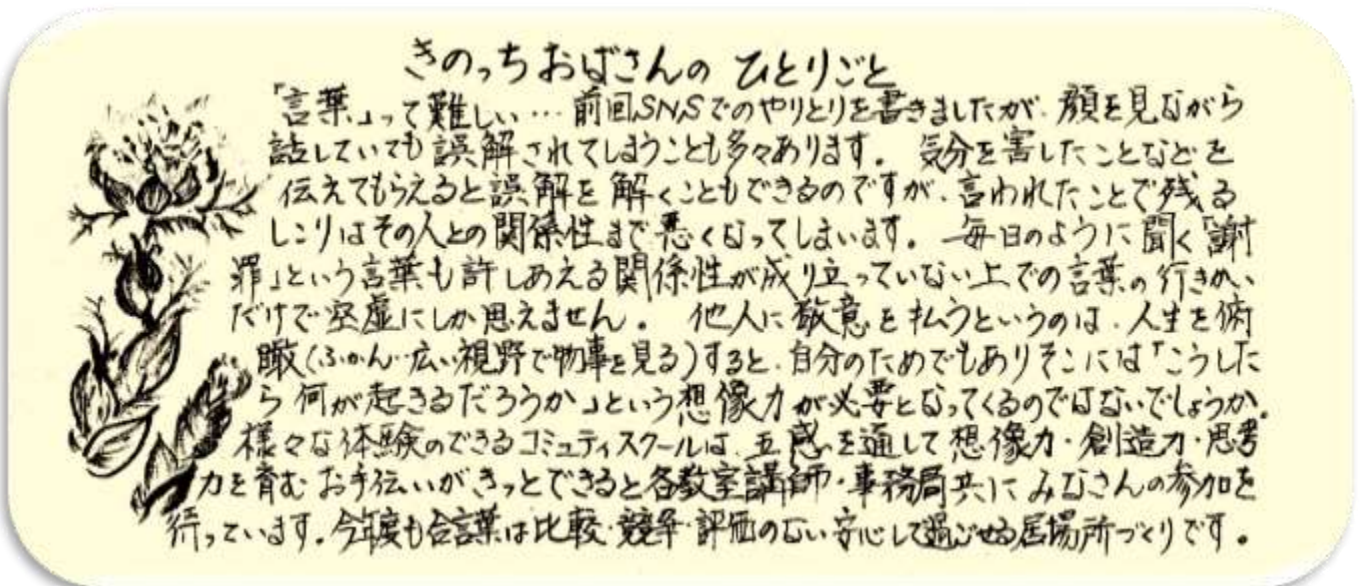 きのっちおばさんの ひとりごと
「言葉」って難しい… 前回SNSでのやりとりを書きましたが、顔を見ながら
話していても誤解されてしまうことも多々あります。 気分を害したことなどを
伝えてもらえると誤解を解くこともできるのですが、言われたことで残る
しこりはその人との関係性まで悪くなってしまいます。 毎日のように聞く「謝
罪」という言葉も許しあえる関係性が成り立っていない上での言葉の行きかい
だけで空虚にしか思えません。 他人に敬意を払うというのは、人生を俯
瞰(ふかん…広い視野で物事を見る)すると、自分のためでもありそこには「こうした
ら何が起きるだろうか」という想像力が必要となってくるのではないでしょうか。
様々な体験のできるコミュティスクールは、五感を通して想像力・創造力・思考
力を育むお手伝いがきっとできると各教室講師・事務局共にみなさんの参加を
待っています。今年度も合言葉は比較・競争・評価のない安心して過ごせる居場所づくりです。